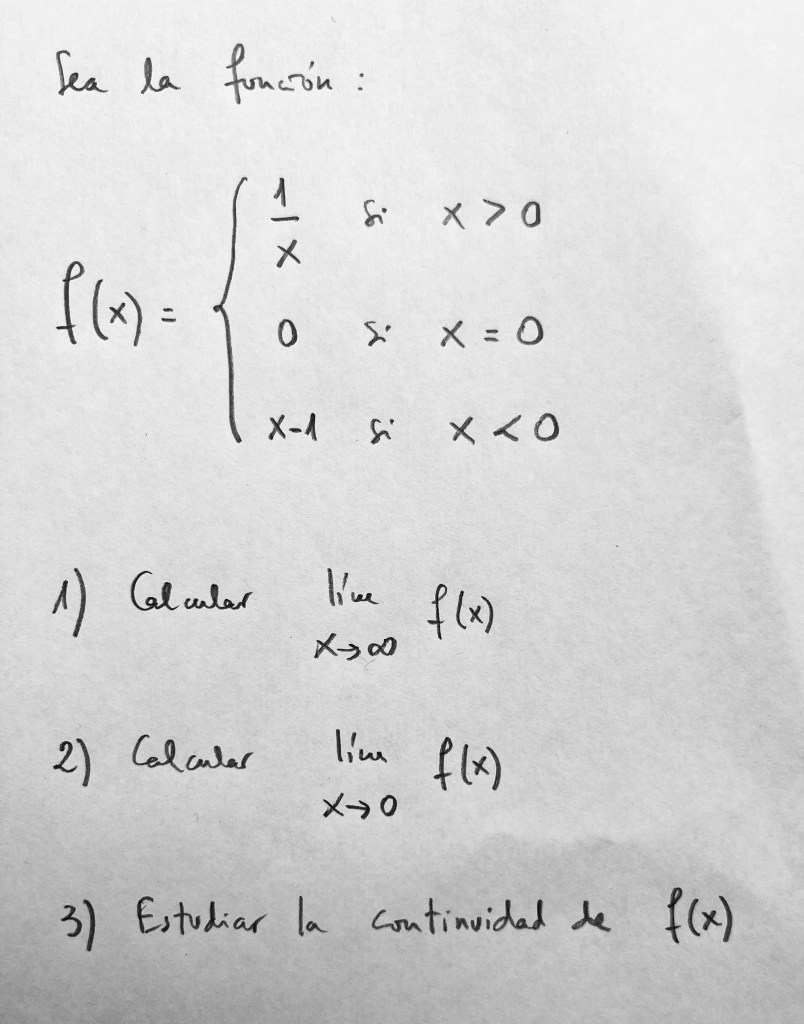 Sea la función:
f(x) = { 1/x si x > 0
0 si x = 0
x-1 si x < 0
1) Calcular lím x→∞ f(x)
2) Calcular lím x→0 f(x)
3) Estudiar la continuidad de f(x)